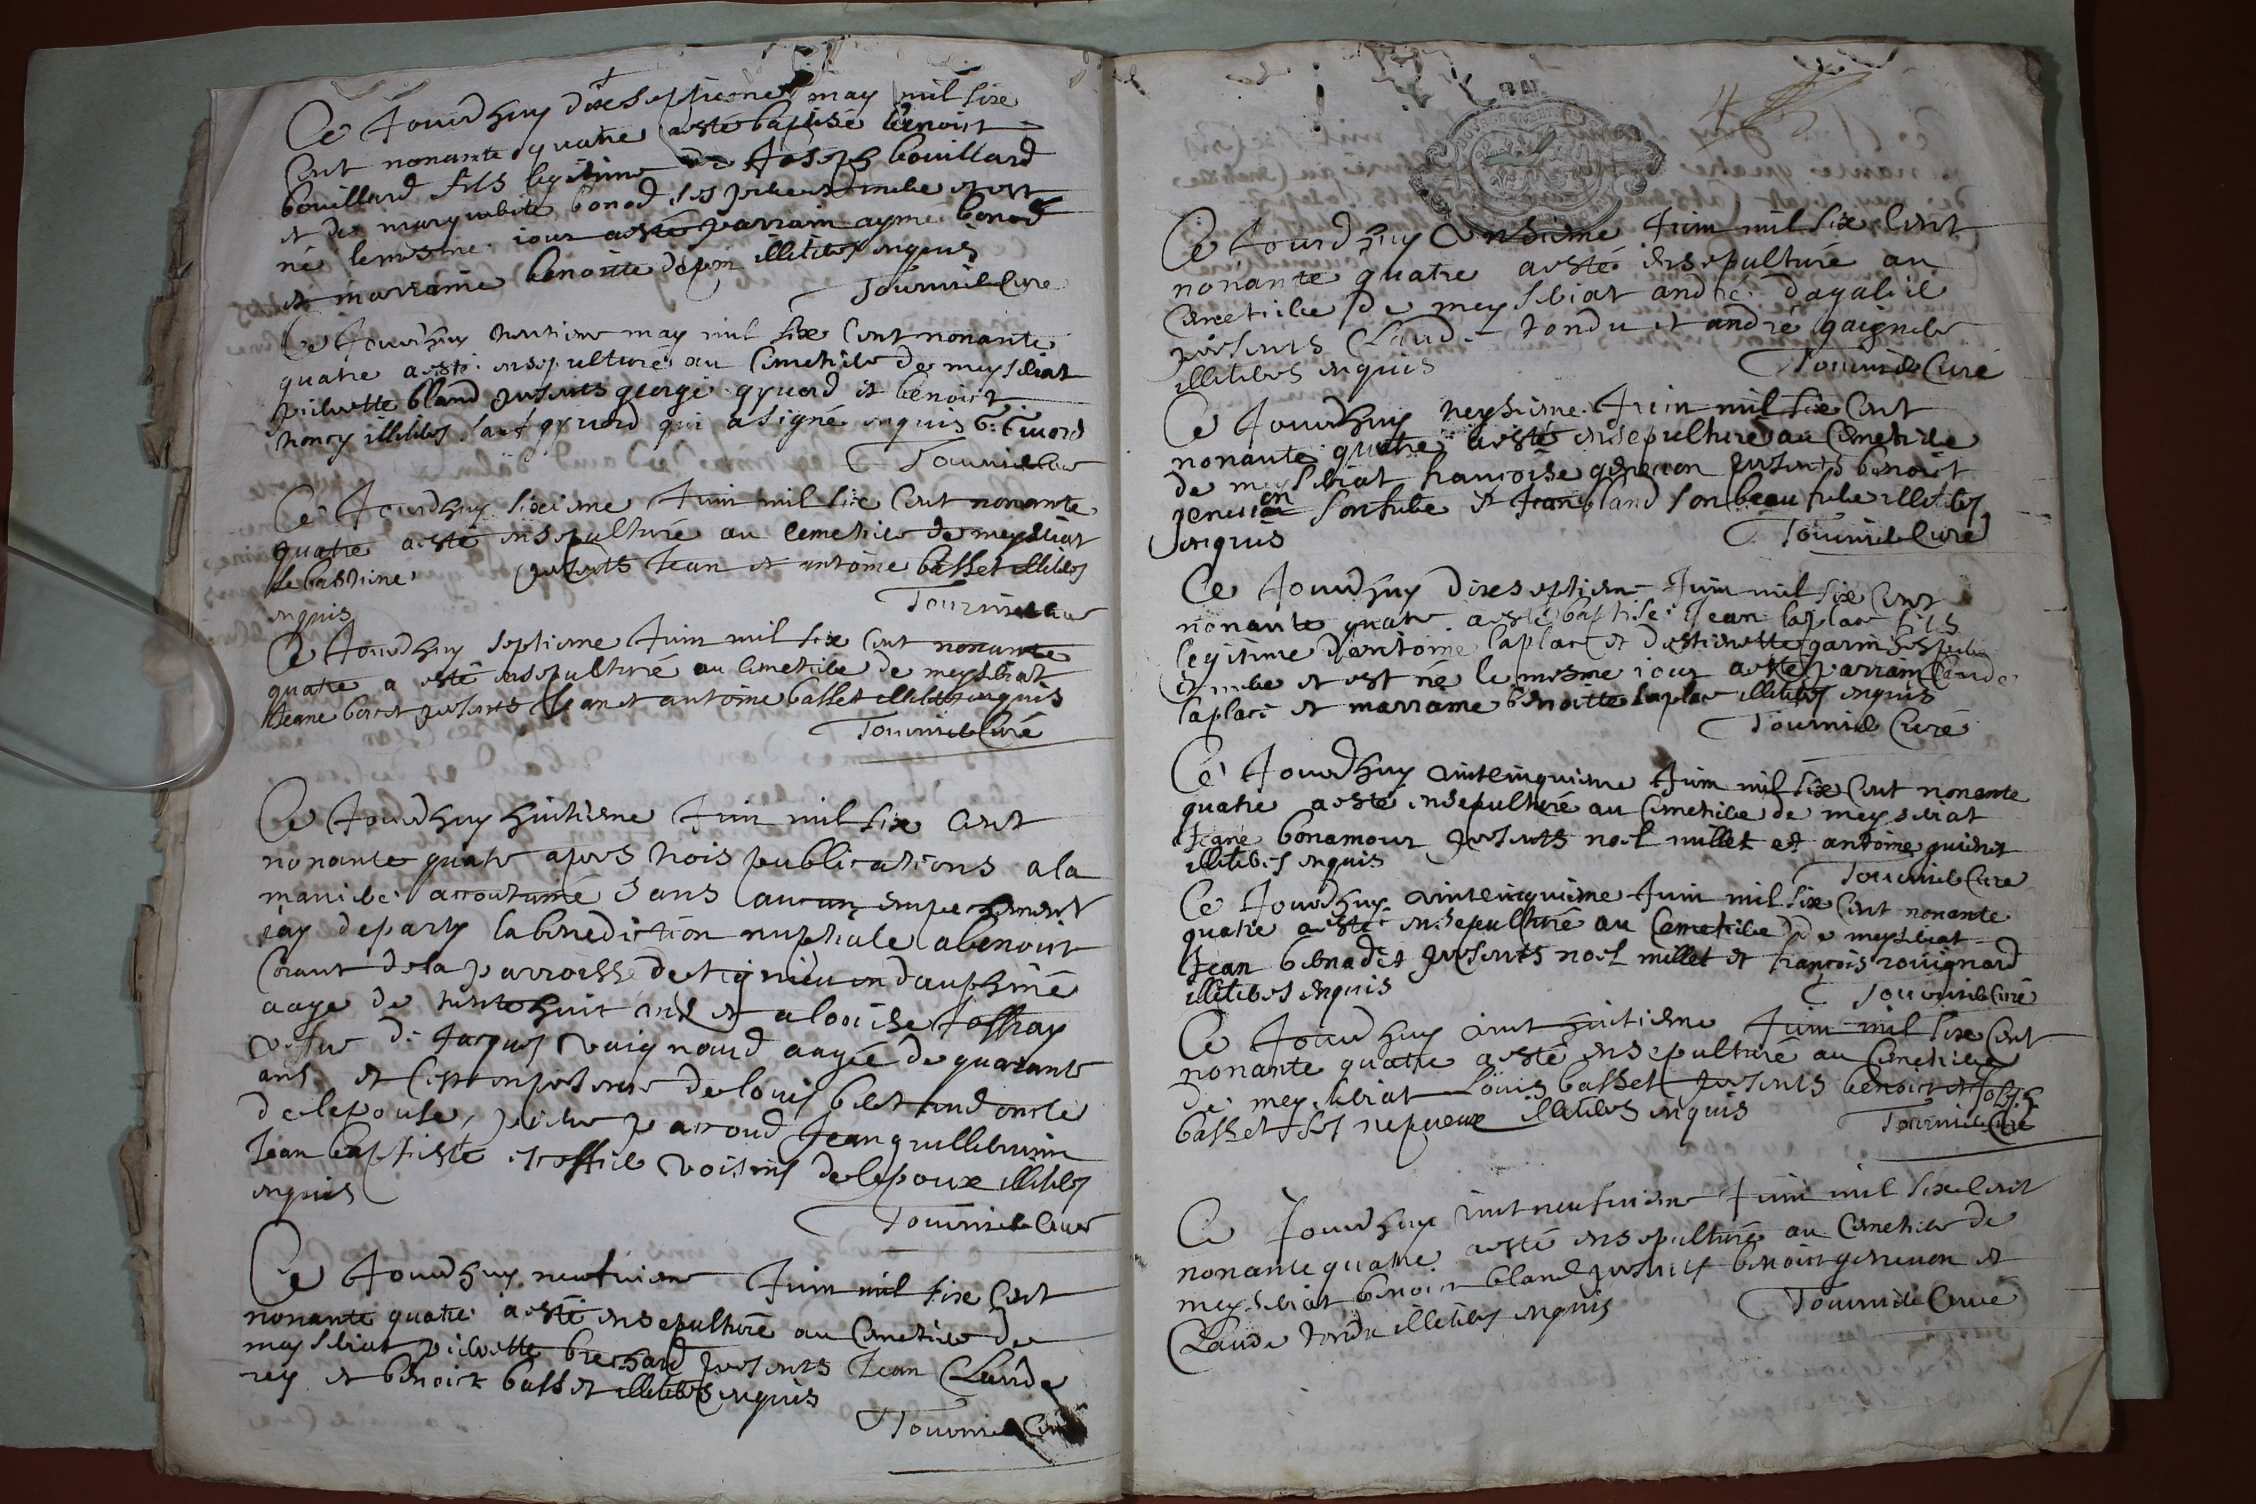 Ce Jourdhuy dixseptiesme may mil six
cent nonante quatre a esté baptise benoist
bouillard fils legitime de Joseph bouillard
et de marguerite bonod ses pere et mere et est
né le mesme iour a esté parrain ayme bonod
et marraine benoitte depin illiteres enquis
Tournier Curé
Ce Jourdhuy may mil six cent nonante
quatre a esté ensepulturé au Cemetiere de meyseriat
pierrette bland presents george gyuord et benoist
noncy illiteres sauf gyuord qui a signé enquis
Tournier Curé
Ce Jourdhuy sixiesme Juin mil six cent nonante
quatre a esté ensepulturé au cemetiere de meyseriat
sebastiene presents Jean et antoine basset illiteres
enquis
Tournier Curé
Ce Jourdhuy septiesme Juin mil six cent nonante
quatre a esté ensepulturé au cemetiere de meyseriat
Jeane presents Jean et antoine basset illiteres enquis
Tournier Curé
Ce Jourdhuy huitiesme Juin mil six cent
nonante quatre apres trois publications a la
maniere accoutumé sans aucun empechement
iay departy la benediction nuptiale a benoist
Corant de la parroisse de tignieu en dauphiné
aage de trente huit ans et a louise Joffray
vefve de Jacques vuignaud aagée de quarante
ans et cest en presence de louis bertrand oncle
de lepouse, pierre parroud Jean guillermin
Jean baptiste voisins de lepoux illiteres
enquis
Tournier Curé
Ce Jourdhuy neufuiesme Juin mil six cent
nonante quatre a esté ensepulturé au Cemetiere de
meyseriat pierrette brechard presents Jean Claude
rey et benoist basset illiteres enquis
Tournier Curé
4
Ce Jourdhuy onsieme Juin mil six cent
nonante quatre a esté ensepulturé au
Cemetiere de meyseriat andré dagalié
presents Claude tondu et andré gaignere
illiteres enquis
Tournier Curé
Ce Jourdhuy treysieme Juin mil six cent
nonante quatre a esté ensepulturé au Cemetiere
de meyseriat francoise geneuon presents benoist
geneuon son frere et Jean bland son beau frere illiteres
enquis
Tournier Curé
Ce Jourdhuy dixseptiesme Juin mil six cent
nonante quatre a esté baptisé Jean laplace fils
legitime dantoine laplace et destienette garin ses pere
et mere et est né le mesme iour a esté parrain Claude
laplace et marraine benoitte laplace illiteres enquis
Tournier Curé
Ce Jourdhuy vintcinquieme Juin mil six cent nonante
quatre a esté ensepulturé au Cemetiere de meyseriat
Jeane bonamour presents noel millet et antoine guichet
illiteres enquis
Tournier Curé
Ce Jourdhuy vintcinquieme Juin mil six cent nonante
quatre a esté ensepulturé au Cemetiere de meyseriat
Jean bernadet presents noel millet et françois rouignard
illiteres enquis
Tournier Curé
Ce Jourdhuy vint huitiesme Juin mil six cent
nonante quatre a esté ensepulturé au Cemetiere
de meyseriat Louis basset presents benoist et Joseph
basset ses nepueux illiteres enquis
Tournier Curé
Ce Jourdhuy vint neufuiesme Juin mil six cent
nonante quatre a esté ensepulturé au Cemetiere de
meyseriat benoist bland presents benoist geneuon et
Claude tondu illiteres enquis
Tournier Curé